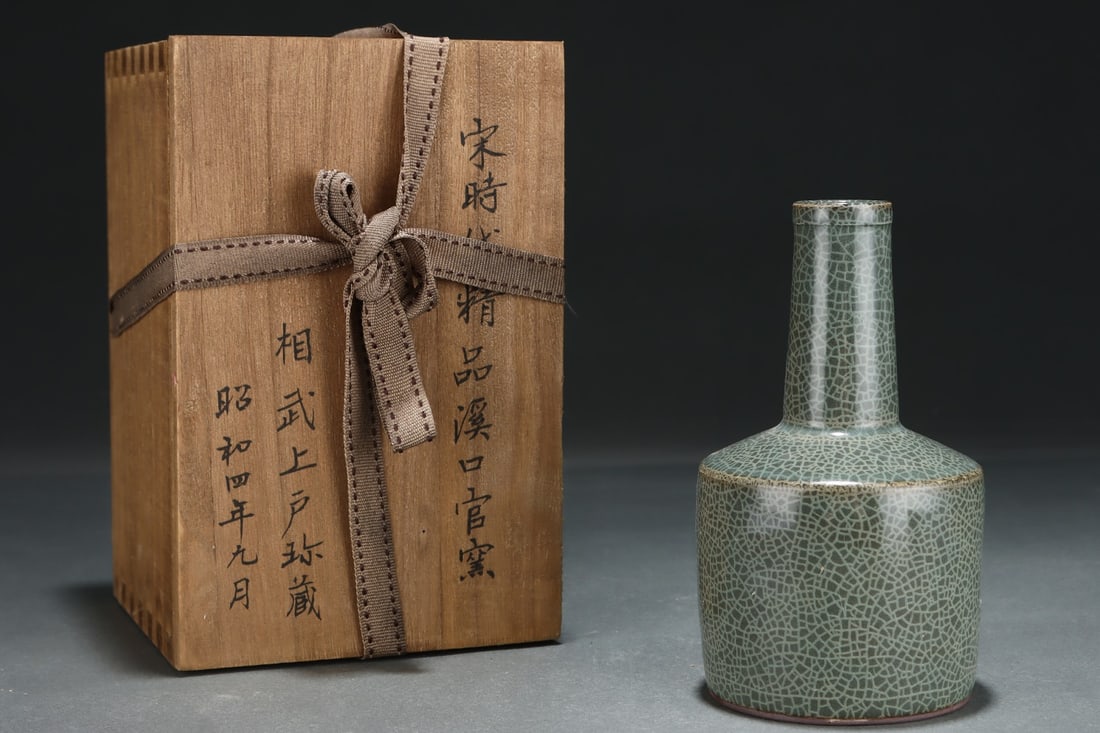 宋時代精品溪口官窯
相武上戸珎蔵
昭和四年九月